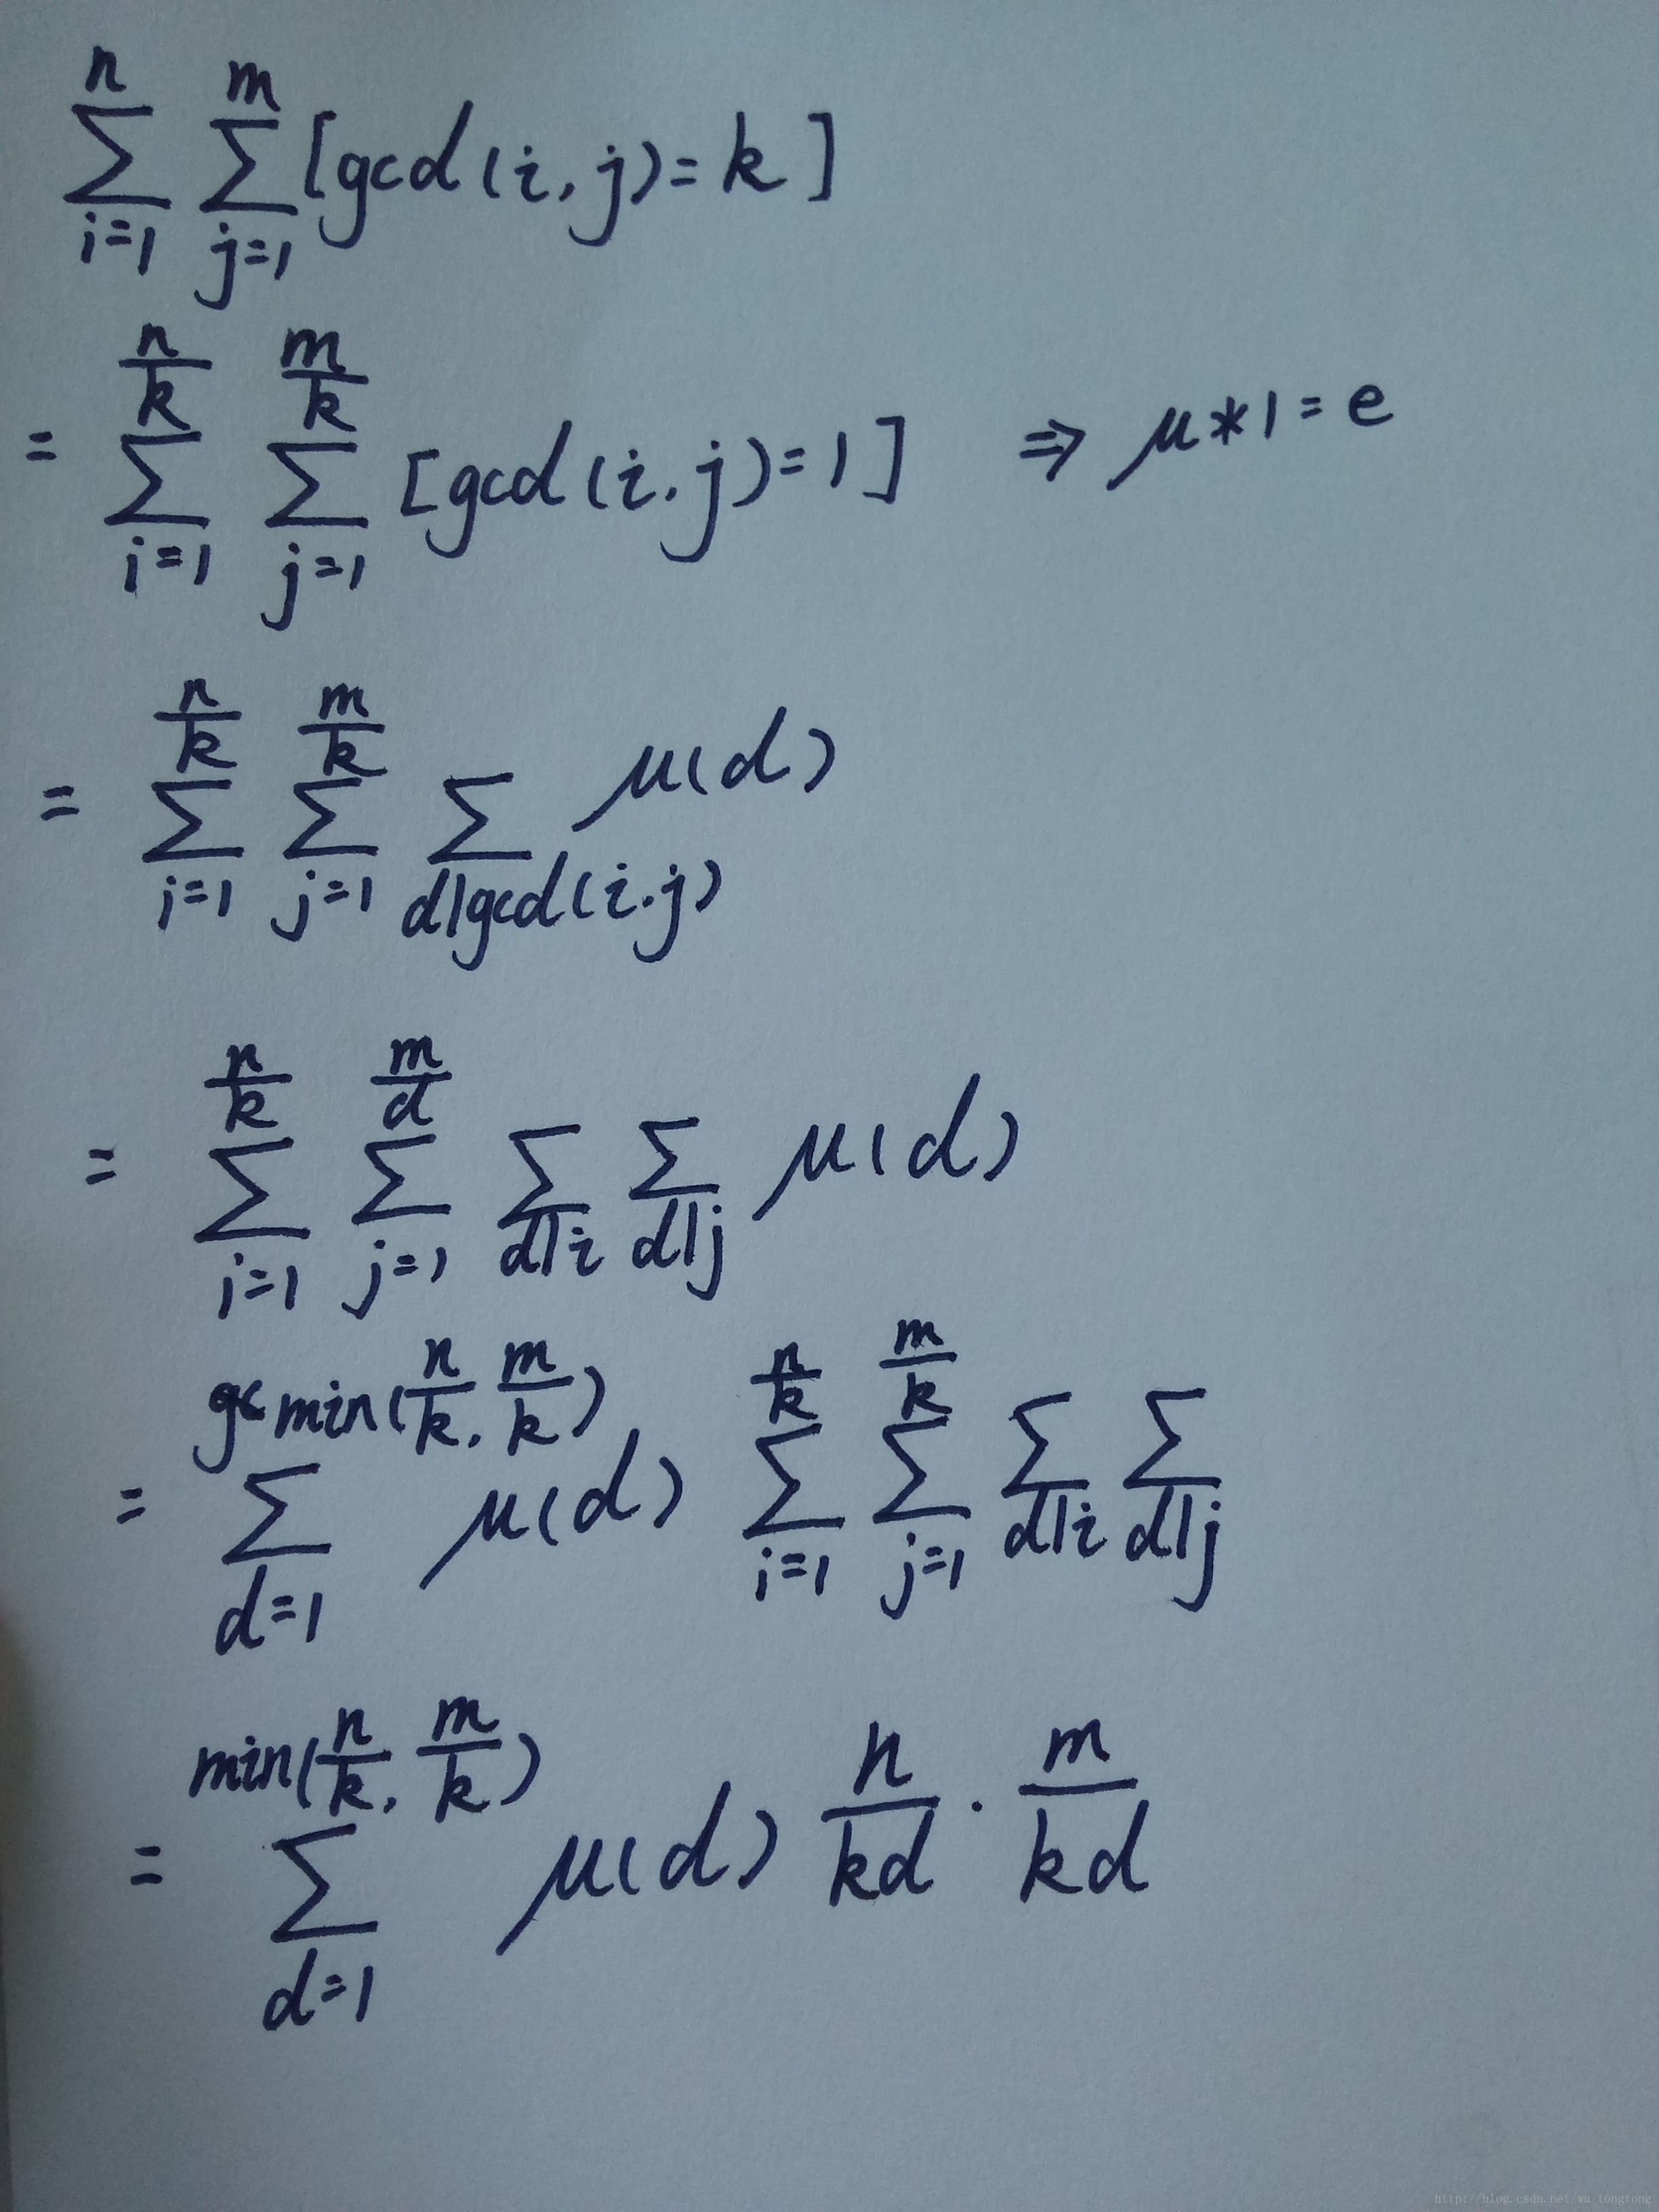 $\sum_{i=1}^{n} \sum_{j=1}^{m} [gcd(i,j)=k]$
$= \sum_{i=1}^{\frac{n}{k}} \sum_{j=1}^{\frac{m}{k}} [gcd(i,j)=1] \Rightarrow \mu * 1 = e$
$= \sum_{i=1}^{\frac{n}{k}} \sum_{j=1}^{\frac{m}{k}} \sum_{d|gcd(i,j)} \mu(d)$
$= \sum_{i=1}^{\frac{n}{k}} \sum_{j=1}^{\frac{m}{d}} \sum_{d|i} \sum_{d|j} \mu(d)$
$= \sum_{d=1}^{gc min(\frac{n}{k}, \frac{m}{k})} \mu(d) \sum_{i=1}^{\frac{n}{k}} \sum_{j=1}^{\frac{m}{k}} \sum_{d|i} \sum_{d|j}$
$= \sum_{d=1}^{min(\frac{n}{k}, \frac{m}{k})} \mu(d) \frac{n}{kd} \cdot \frac{m}{kd}$
http://blog.csdn.net/wu_tongtong